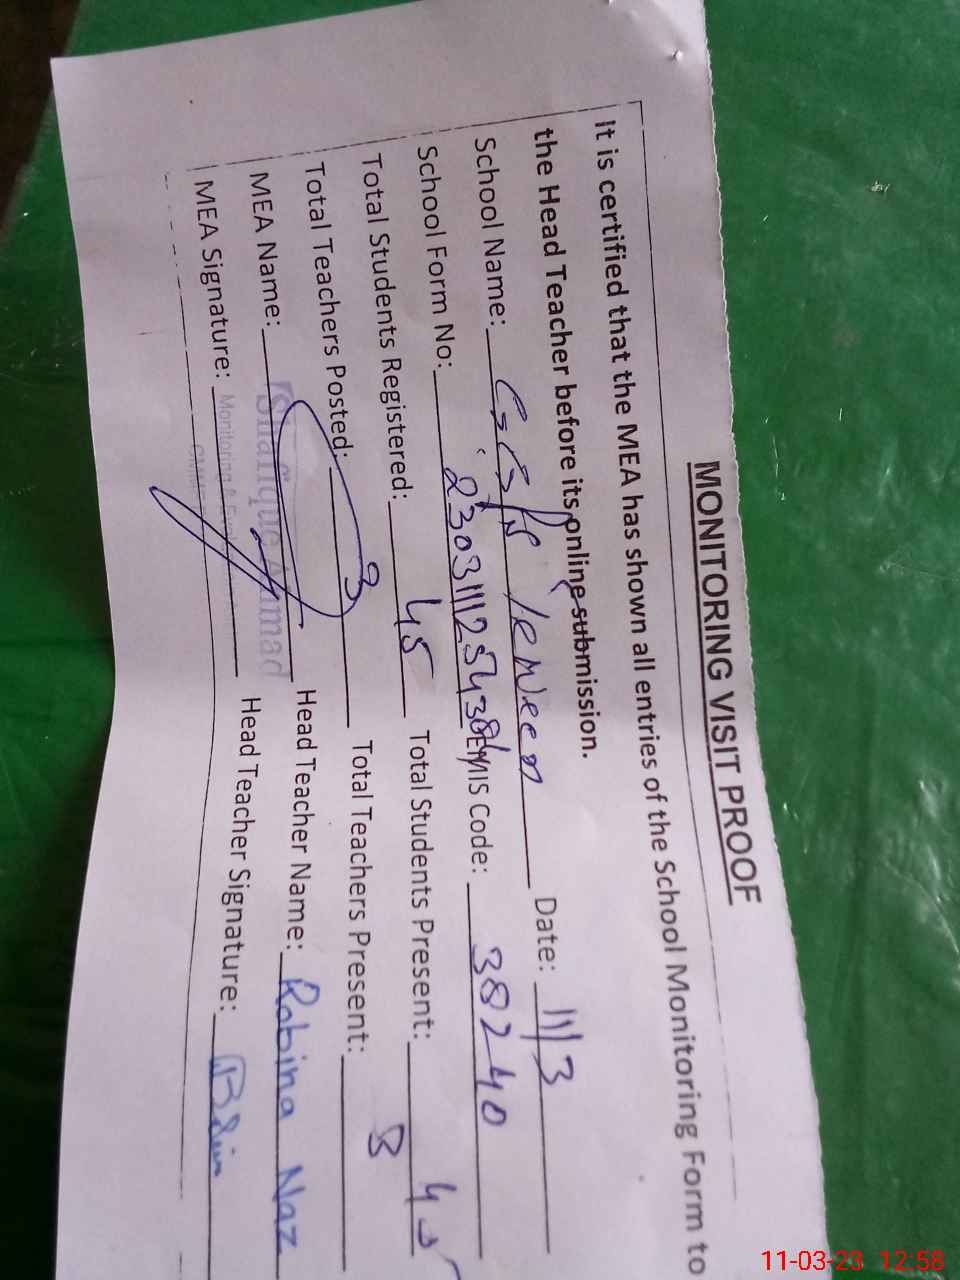 MONITORING VISIT PROOF
It is certified that the MEA has shown all entries of the School Monitoring Form to
the Head Teacher before its online submission.
School Name: Date: 11/3
School Form No: EMIS Code: 38240
Total Students Registered: 45 Total Students Present:
Total Teachers Posted: 3 Total Teachers Present: 3
MEA Name: Shafique Ahmad Head Teacher Name: Robina Naz
MEA Signature: Head Teacher Signature:
11-03-23 12:58